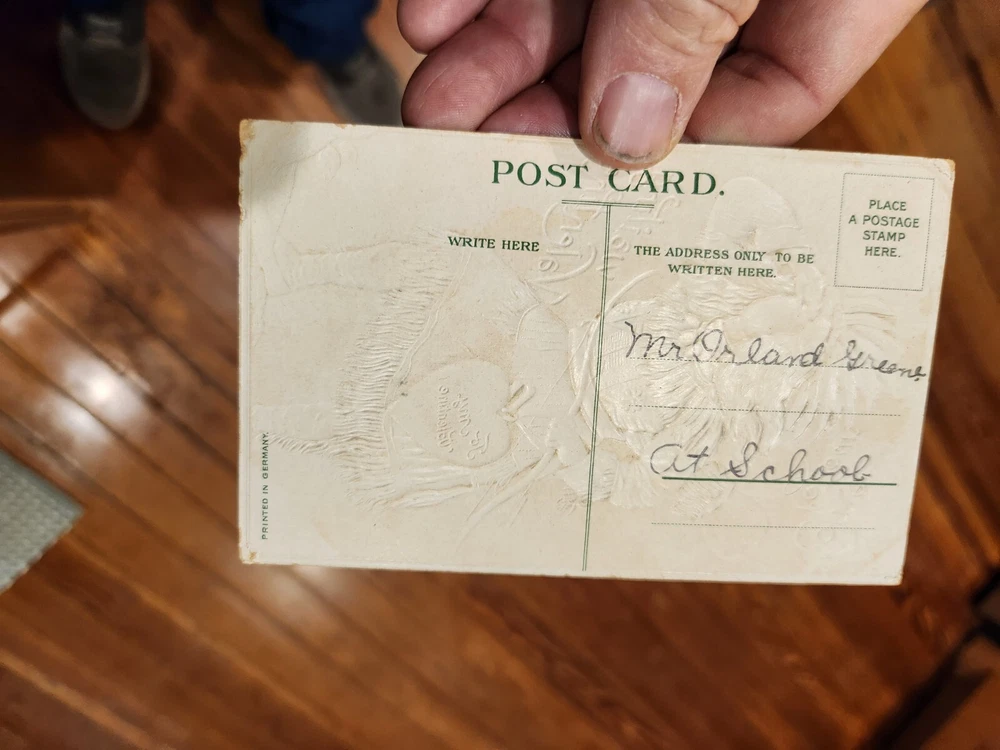 POST CARD.
WRITE HERE
THE ADDRESS ONLY TO BE
WRITTEN HERE.
PLACE
A POSTAGE
STAMP
HERE.
Mr Orland Greene
At School
PRINTED IN GERMANY.